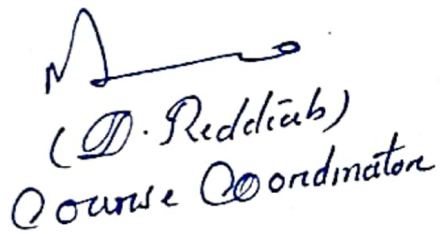 (D. Reddiab)
Course Coordinator